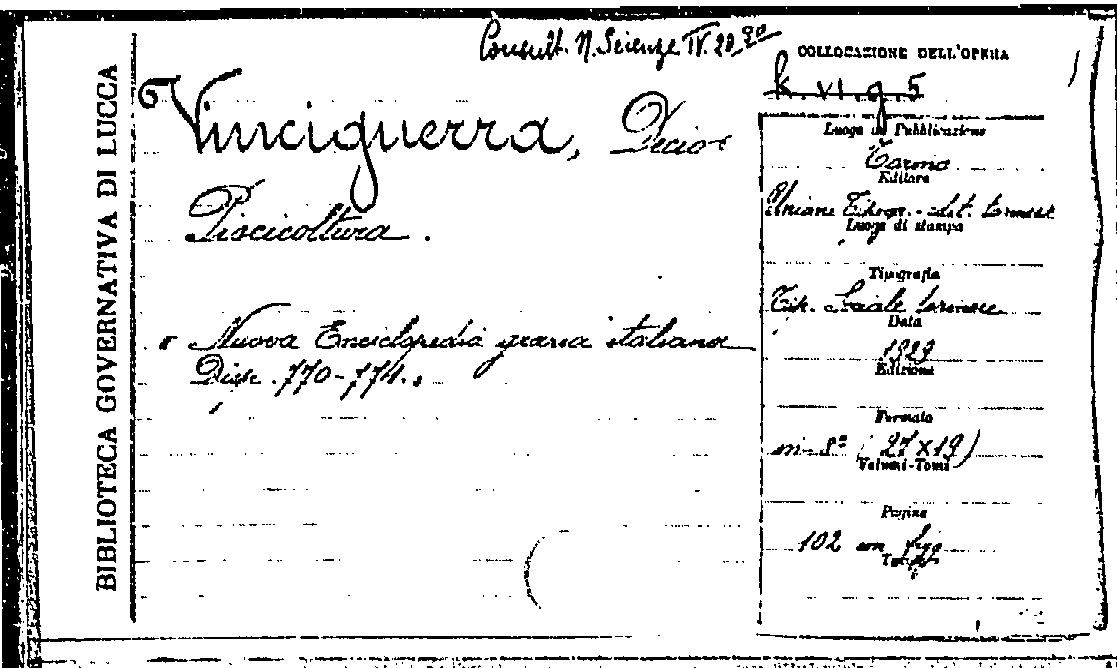 BIBLIOTECA GOVERNATIVA DI LUCCA
Consult. N. Scienze IV. 20
Vinciguerra, Decio
Piscicoltura.
Nuova Enciclopedia agraria italiana
Disp. 770-774.
COLLOCAZIONE DELL'OPERA
k. VI. g. 5
Luogo di Pubblicazione
Torino
Editore
Unione Tip.-edit. torinese
Luogo di stampa
Tipografia
Tip. Sociale torinese
Data
Edizione
Formato
in-8º (27x19)
Volumi-Tomi
Pagine
102 con figg